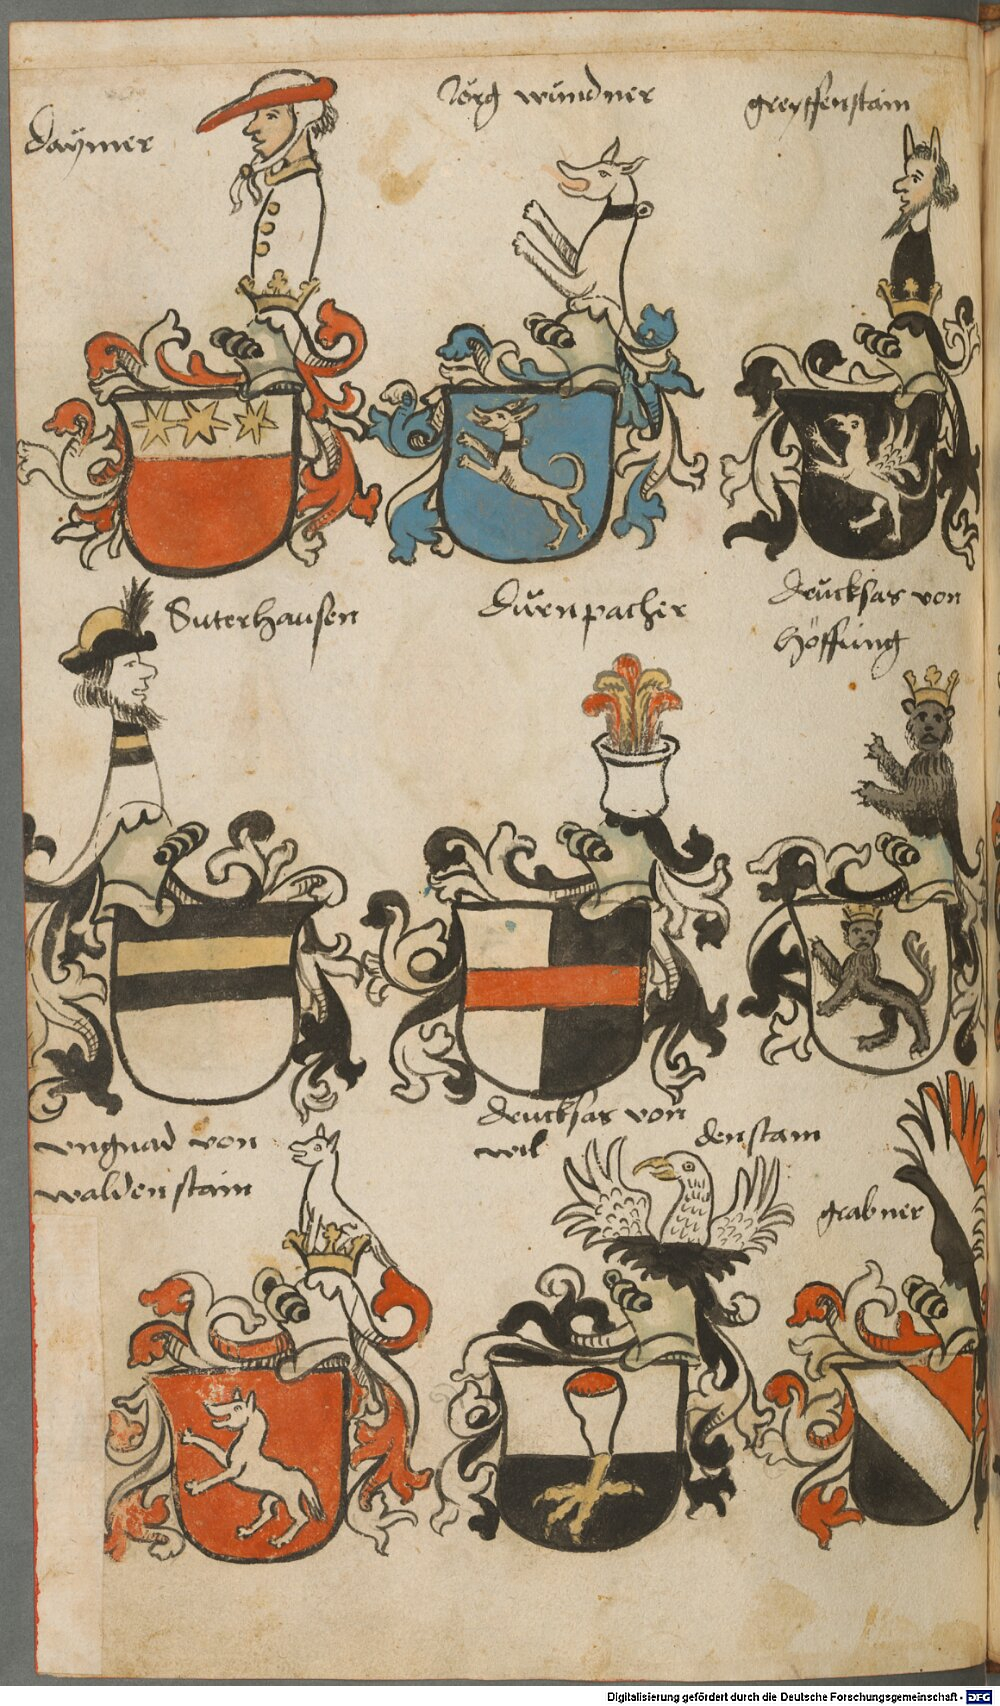 Daÿmer
Jörg wundner
greyffenstain
Suterhausen
Dürnpacher
drucksas von
Höffüng
vngnad von
waldenstain
drucksas von
wil
denstain
grabner
Digitalisierung gefördert durch die Deutsche Forschungsgemeinschaft - DFG